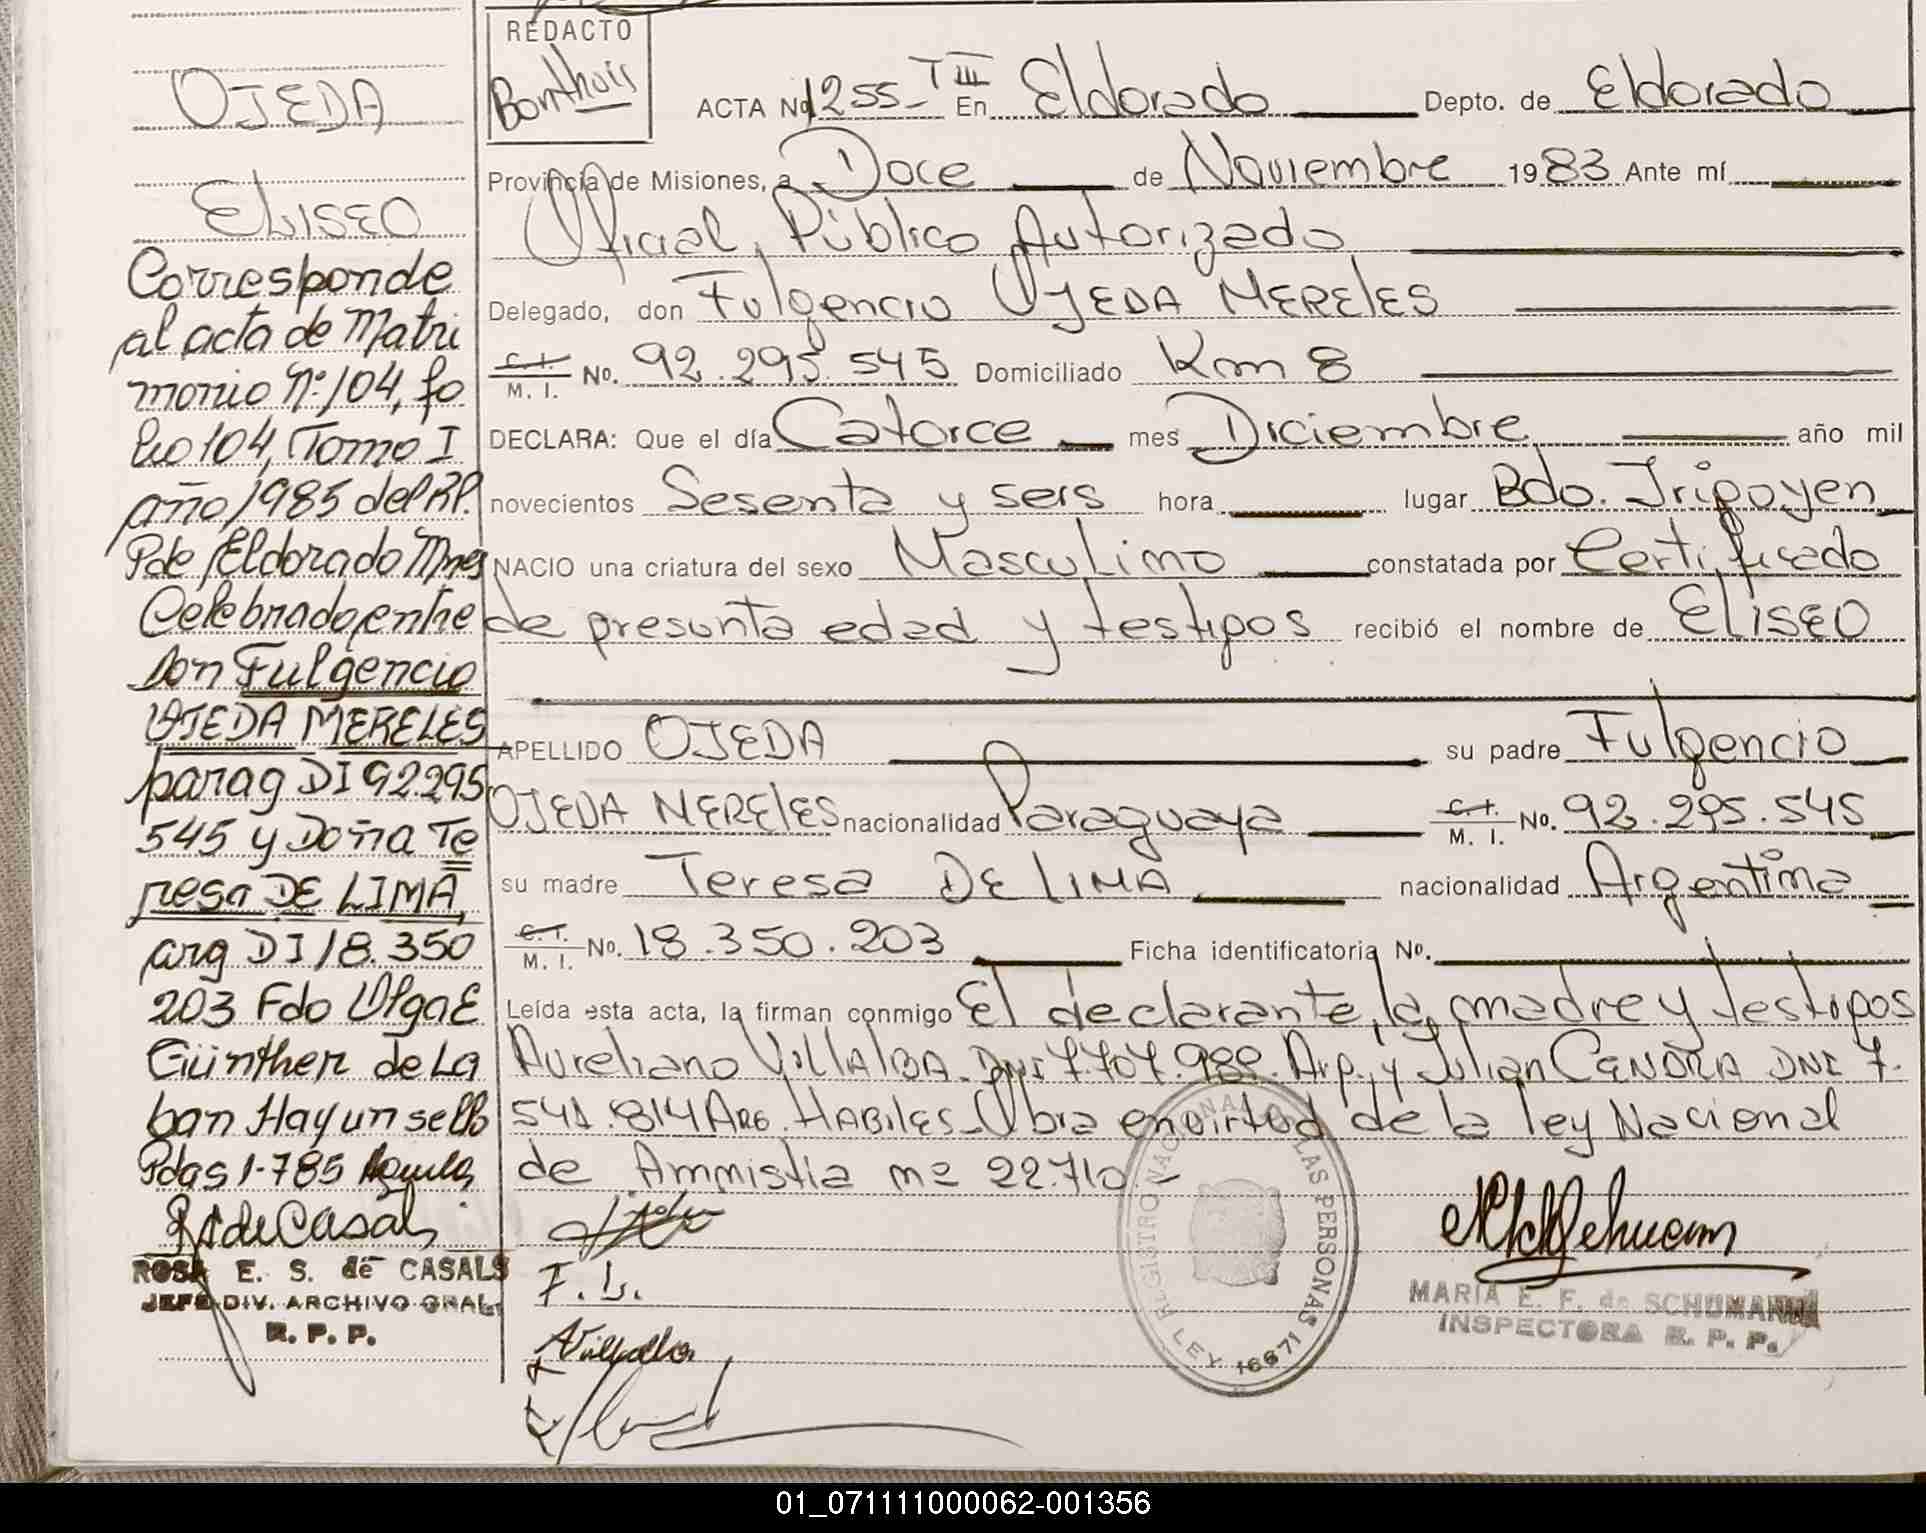 OJEDA
ELISEO
Corresponde
al acta de Matri
monio Nº 104, fo
lio 104, Tomo I
año 1985 del RP.
Pde Eldorado Mnes
Celebrado entre
Don Fulgencio
OJEDA MERELES
parag DI 92.295
545 y Doña Te
resa DE LIMA,
arg DI 18.350
203 Fdo Olga E
Günther de La
ban Hay un sello
Pdas 1-785
R S de Casals
ROSA E. S. de CASALS
JEFE DIV. ARCHIVO GRAL.
R. P. P.
REDACTO
Bonthuis
ACTA Nº 1255-T III En Eldorado Depto. de Eldorado
Provincia de Misiones, a Doce de Noviembre 1983 Ante mí
Oficial Público Autorizado
Delegado, don Fulgencio OJEDA MERELES
C. I. M. I. No. 92.295.545 Domiciliado Km 8
DECLARA: Que el día Catorce mes Diciembre año mil
novecientos Sesenta y seis hora lugar Bdo. Irigoyen
NACIO una criatura del sexo Masculino constatada por Certificado
de presunta edad y testigos recibió el nombre de ELISEO
APELLIDO OJEDA su padre Fulgencio
OJEDA MERELES nacionalidad Paraguaya C. I. M. I. No. 92.295.545
su madre Teresa DE LIMA nacionalidad Argentina
C. I. M. I. No. 18.350.203 Ficha identificatoria No.
Leída esta acta, la firman conmigo El declarante, la madre y testigos
Aureliano VILLALBA DNI 7.707.988. Arg., y Julian DNI 7.
541.814 ARG. HABILES - Obra en virtud de la ley Nacional
de Amnistia nº 22.710.-
F. L.
AVillalba
REGISTRO NACIONAL DE LAS PERSONAS
LEY 16671
MARIA E. F. de SCHUMANN
INSPECTORA R. P. P.
01_071111000062-001356